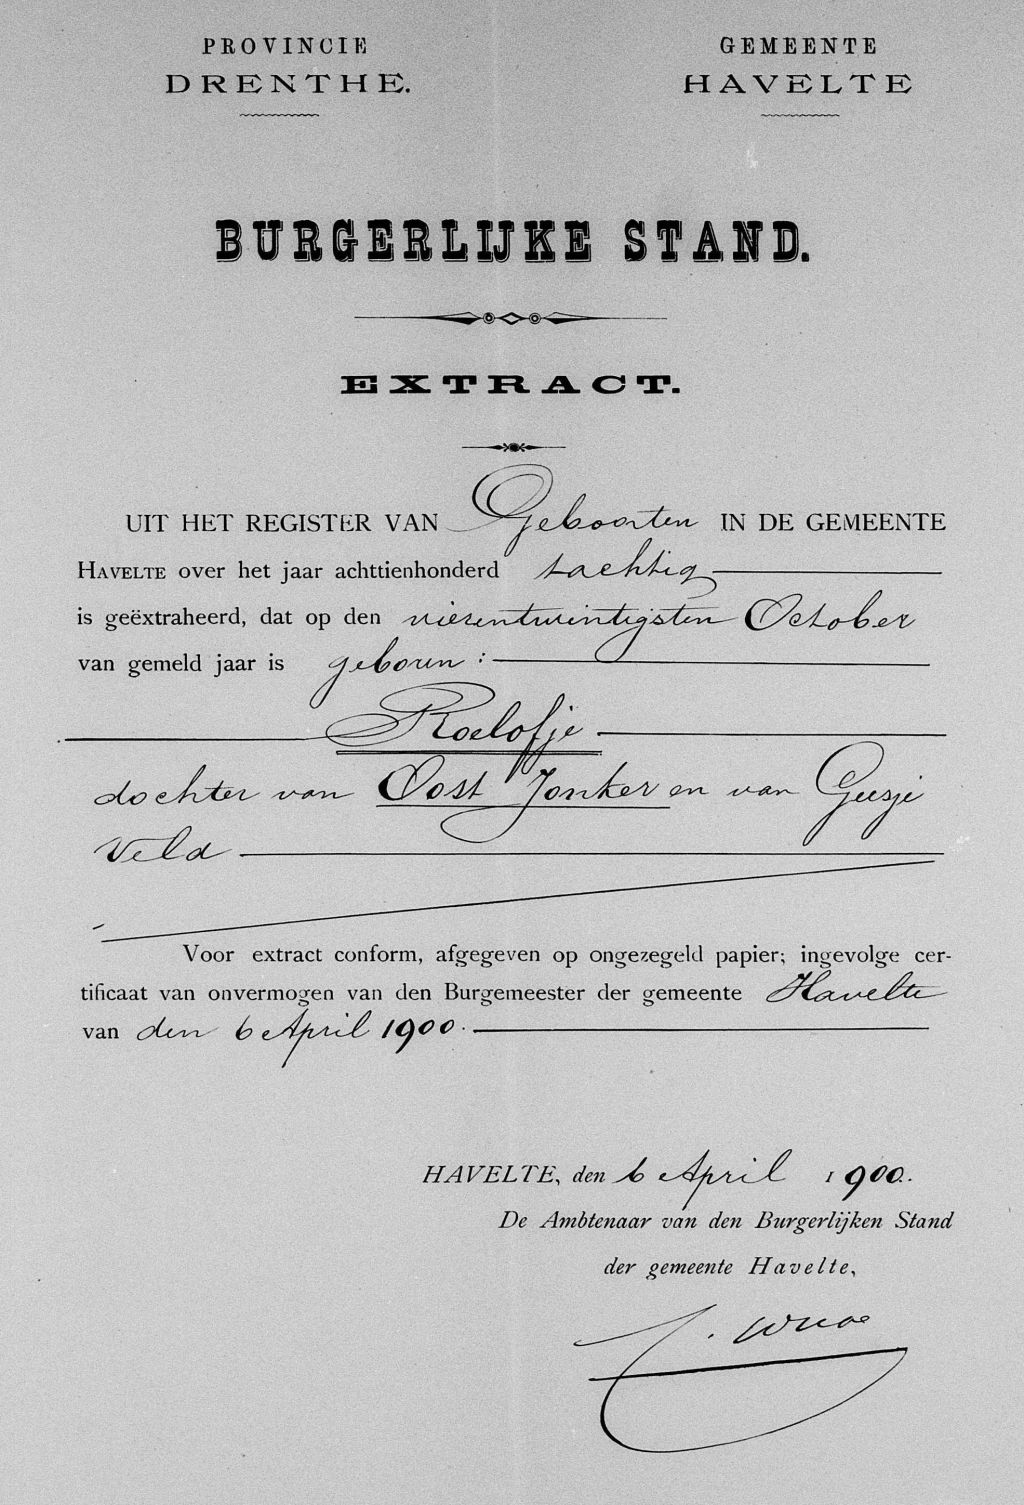 PROVINCIE
DRENTHE.
GEMEENTE
HAVELTE
BURGERLIJKE STAND.
EXTRACT.
UIT HET REGISTER VAN Geboorten IN DE GEMEENTE
HAVELTE over het jaar achttienhonderd tachtig
is geëxtraheerd, dat op den vierentwintigsten October
van gemeld jaar is geboren :
Roelofje
dochter van Oost Jonker en van Geesje
Veld
Voor extract conform, afgegeven op ongezegeld papier; ingevolge cer-
tificaat van onvermogen van den Burgemeester der gemeente Havelte
van den 6 April 1900.
HAVELTE, den 6 April 1900.
De Ambtenaar van den Burgerlijken Stand
der gemeente Havelte,